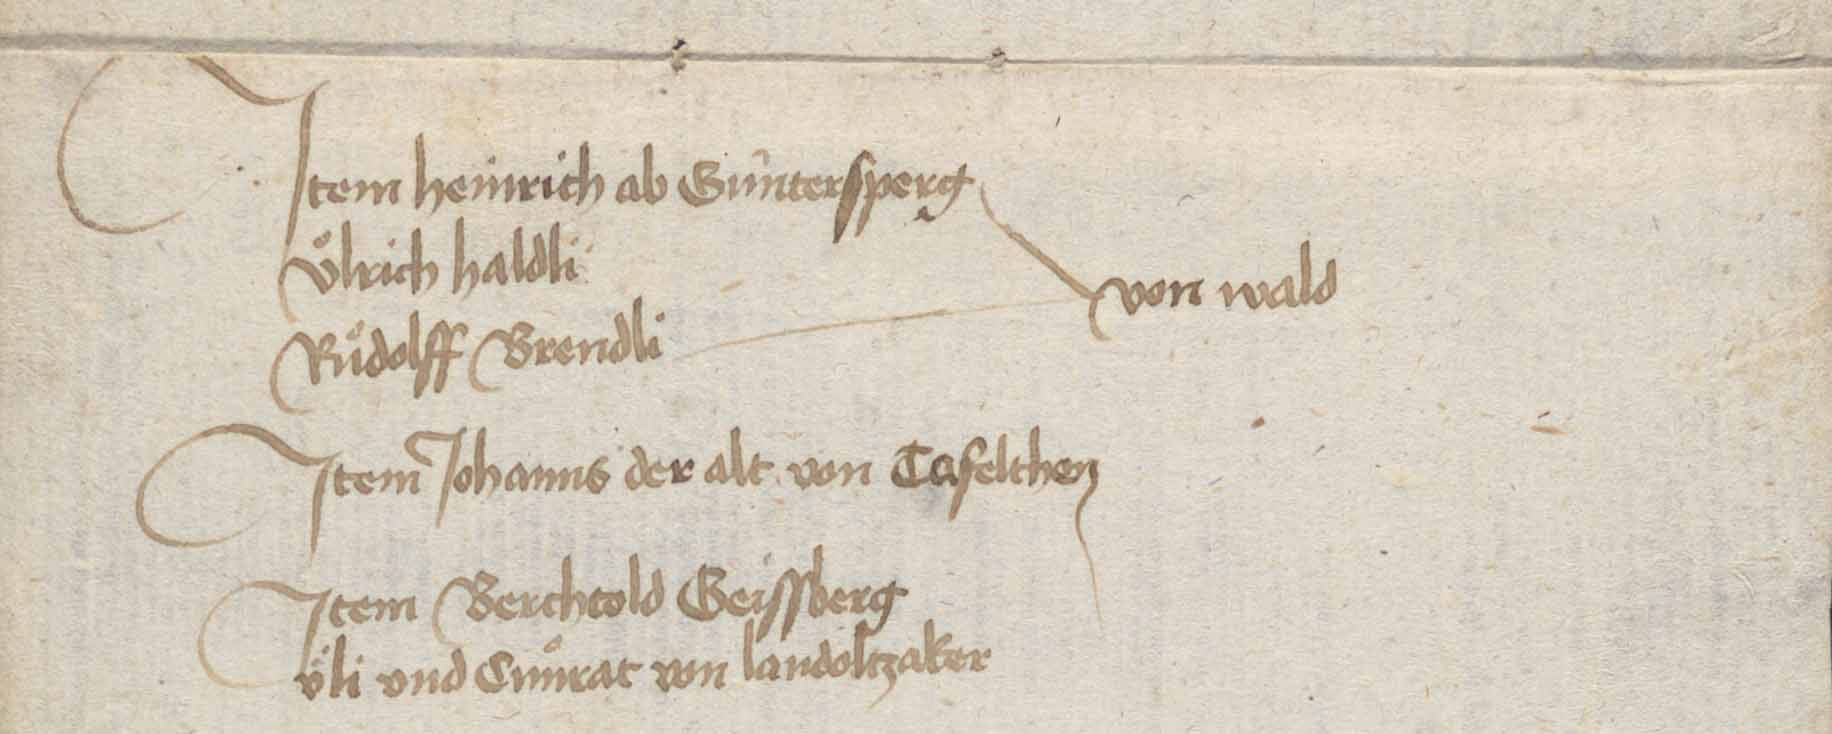 Item heinrich ab Güntersperg
Vͦlrich haldli
Růdolff Brendli
von wald
Item Johanns der alt von Taſelthen
Item Berchtold Geiſſberg
vͦli vnd Cuͦnrat von landoltzaker